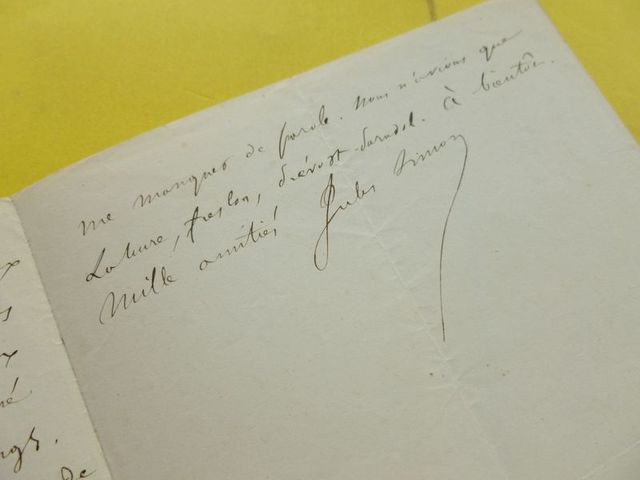 me manquez de parole. nous n'avions que
Lahure, Preslon, Prévost-Paradol. à bientôt.
Mille amitiés Jules Simon
x
s
x
né
ngs.
de